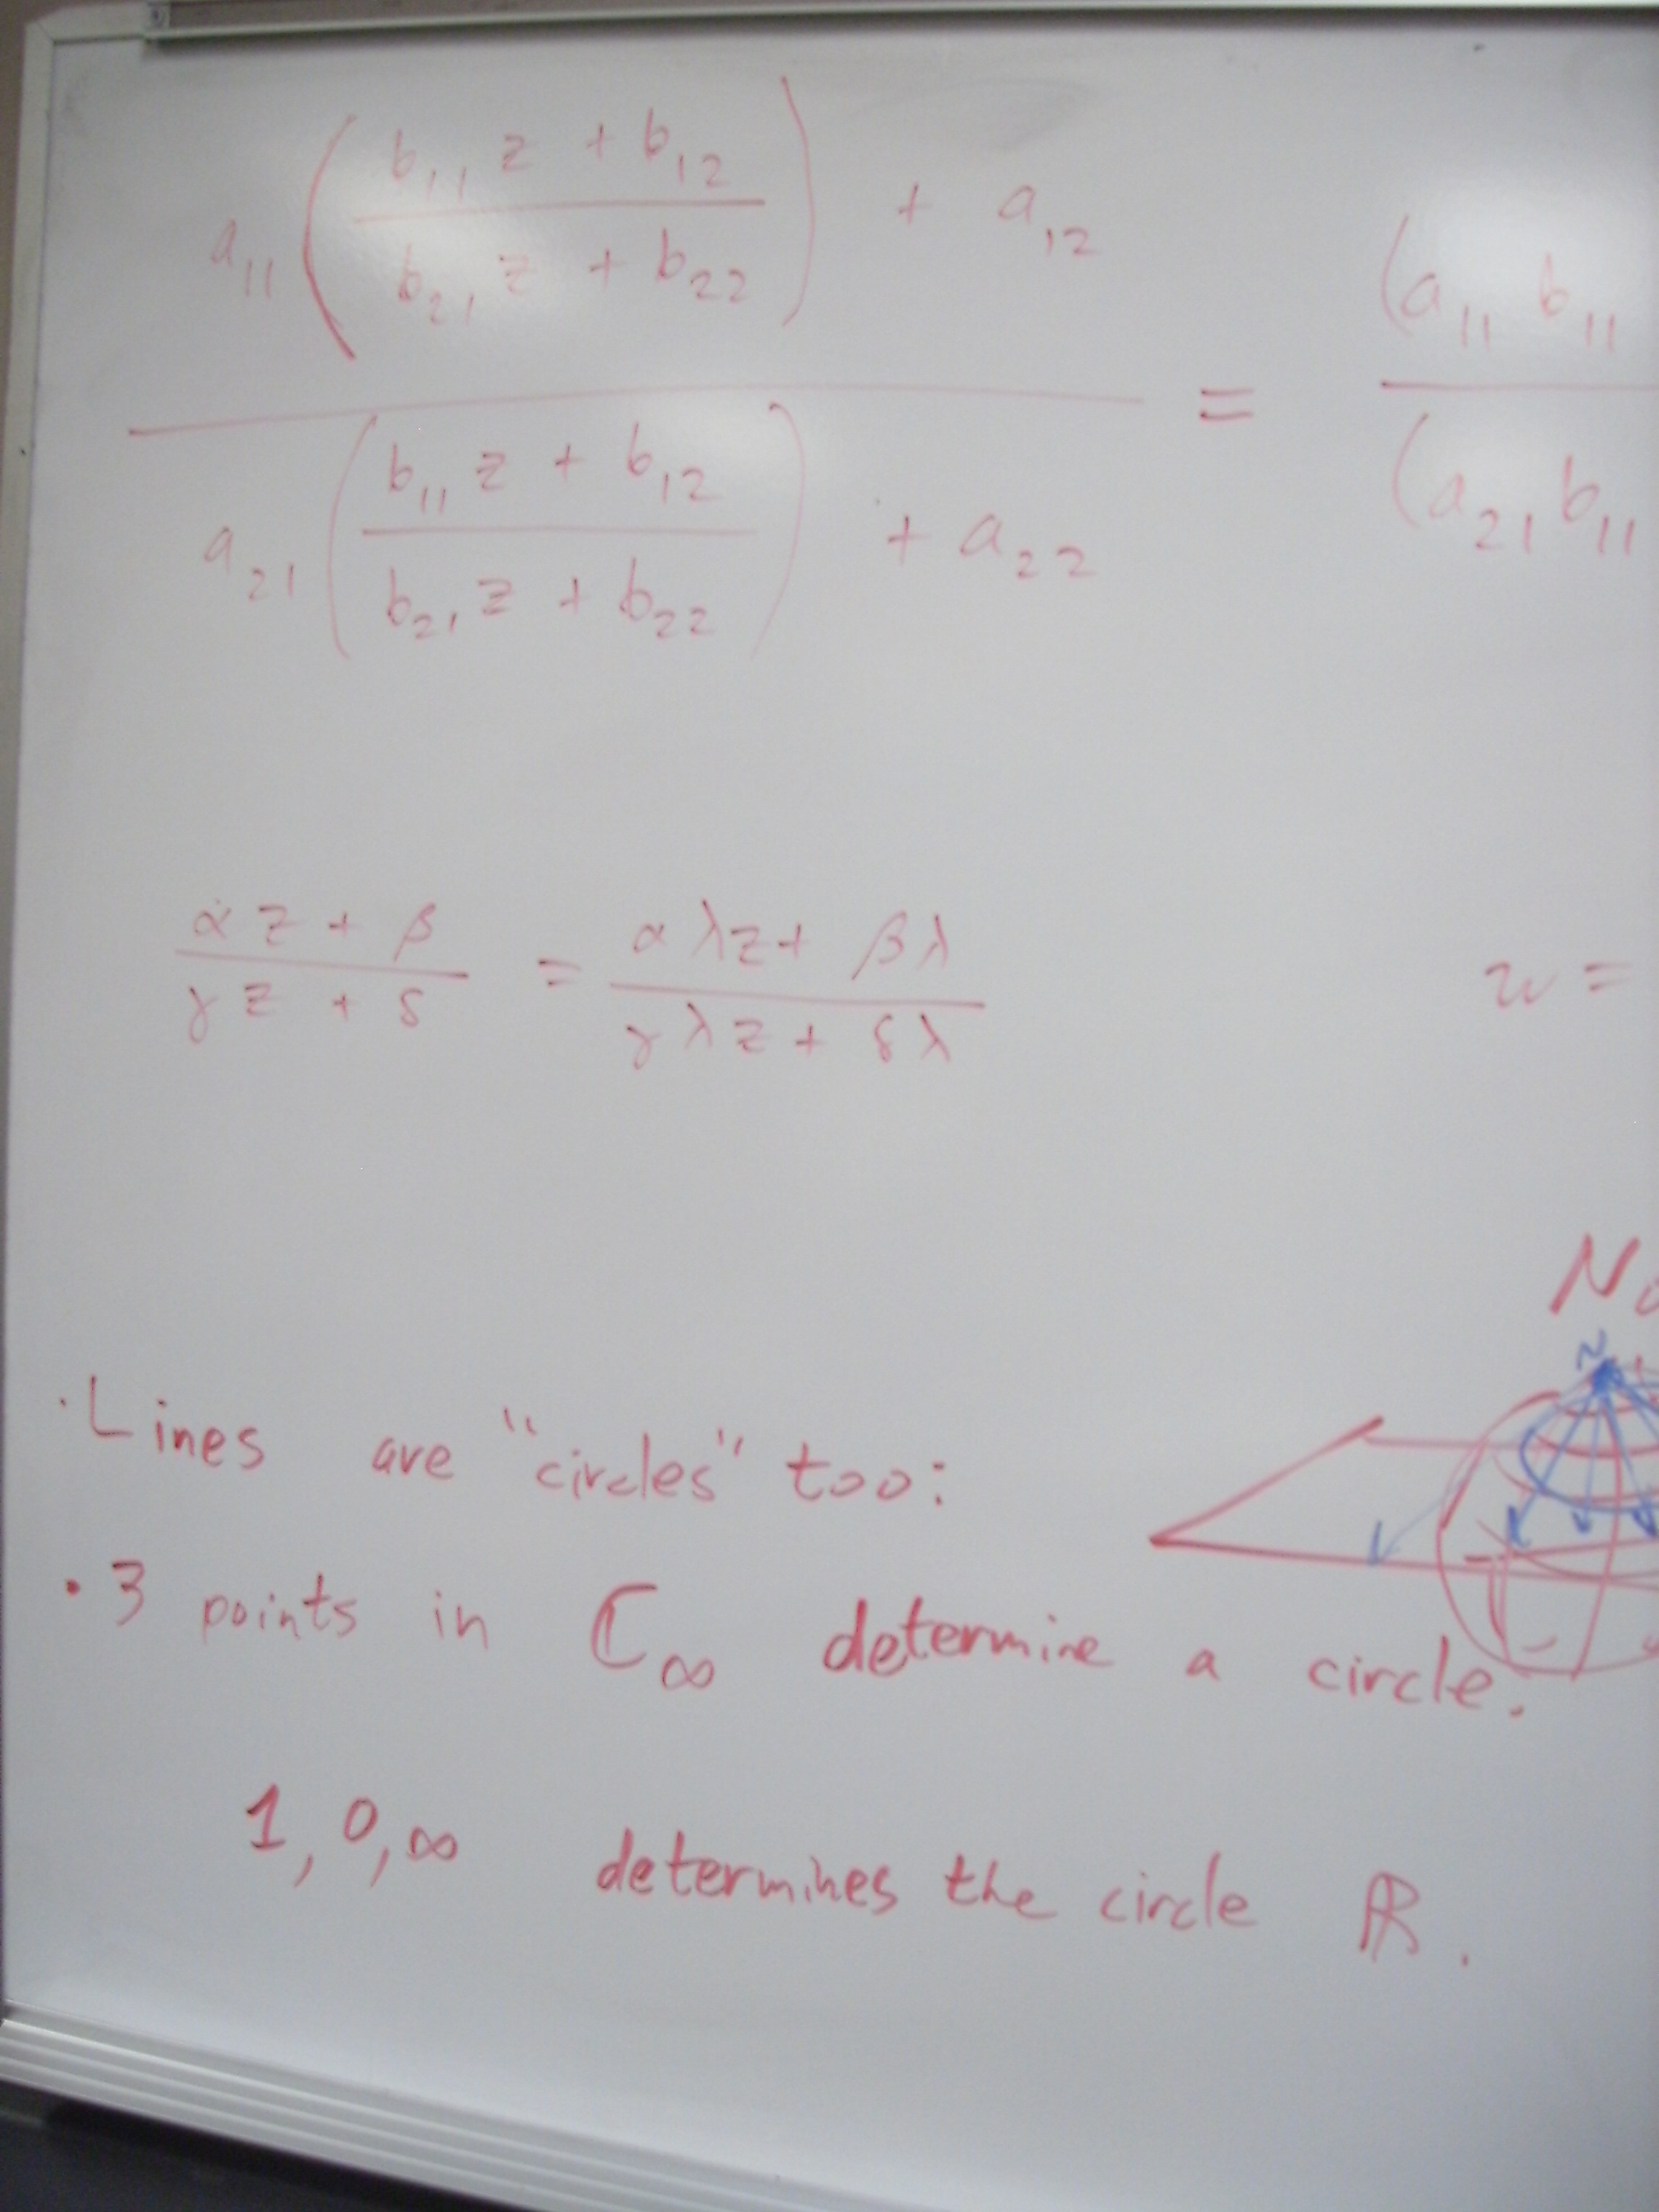 a₁₁ ( (b₁₁ z + b₁₂) / (b₂₁ z + b₂₂) ) + a₁₂
a₂₁ ( (b₁₁ z + b₁₂) / (b₂₁ z + b₂₂) ) + a₂₂
=
(a₁₁ b₁₁
(a₂₁ b₁₁
(αz + β) / (γz + δ) = (αλz + βλ) / (γλz + δλ)
w =
N
· Lines are "circles" too:
· 3 points in ℂ∞ determine a circle.
1, 0, ∞ determines the circle ℝ.